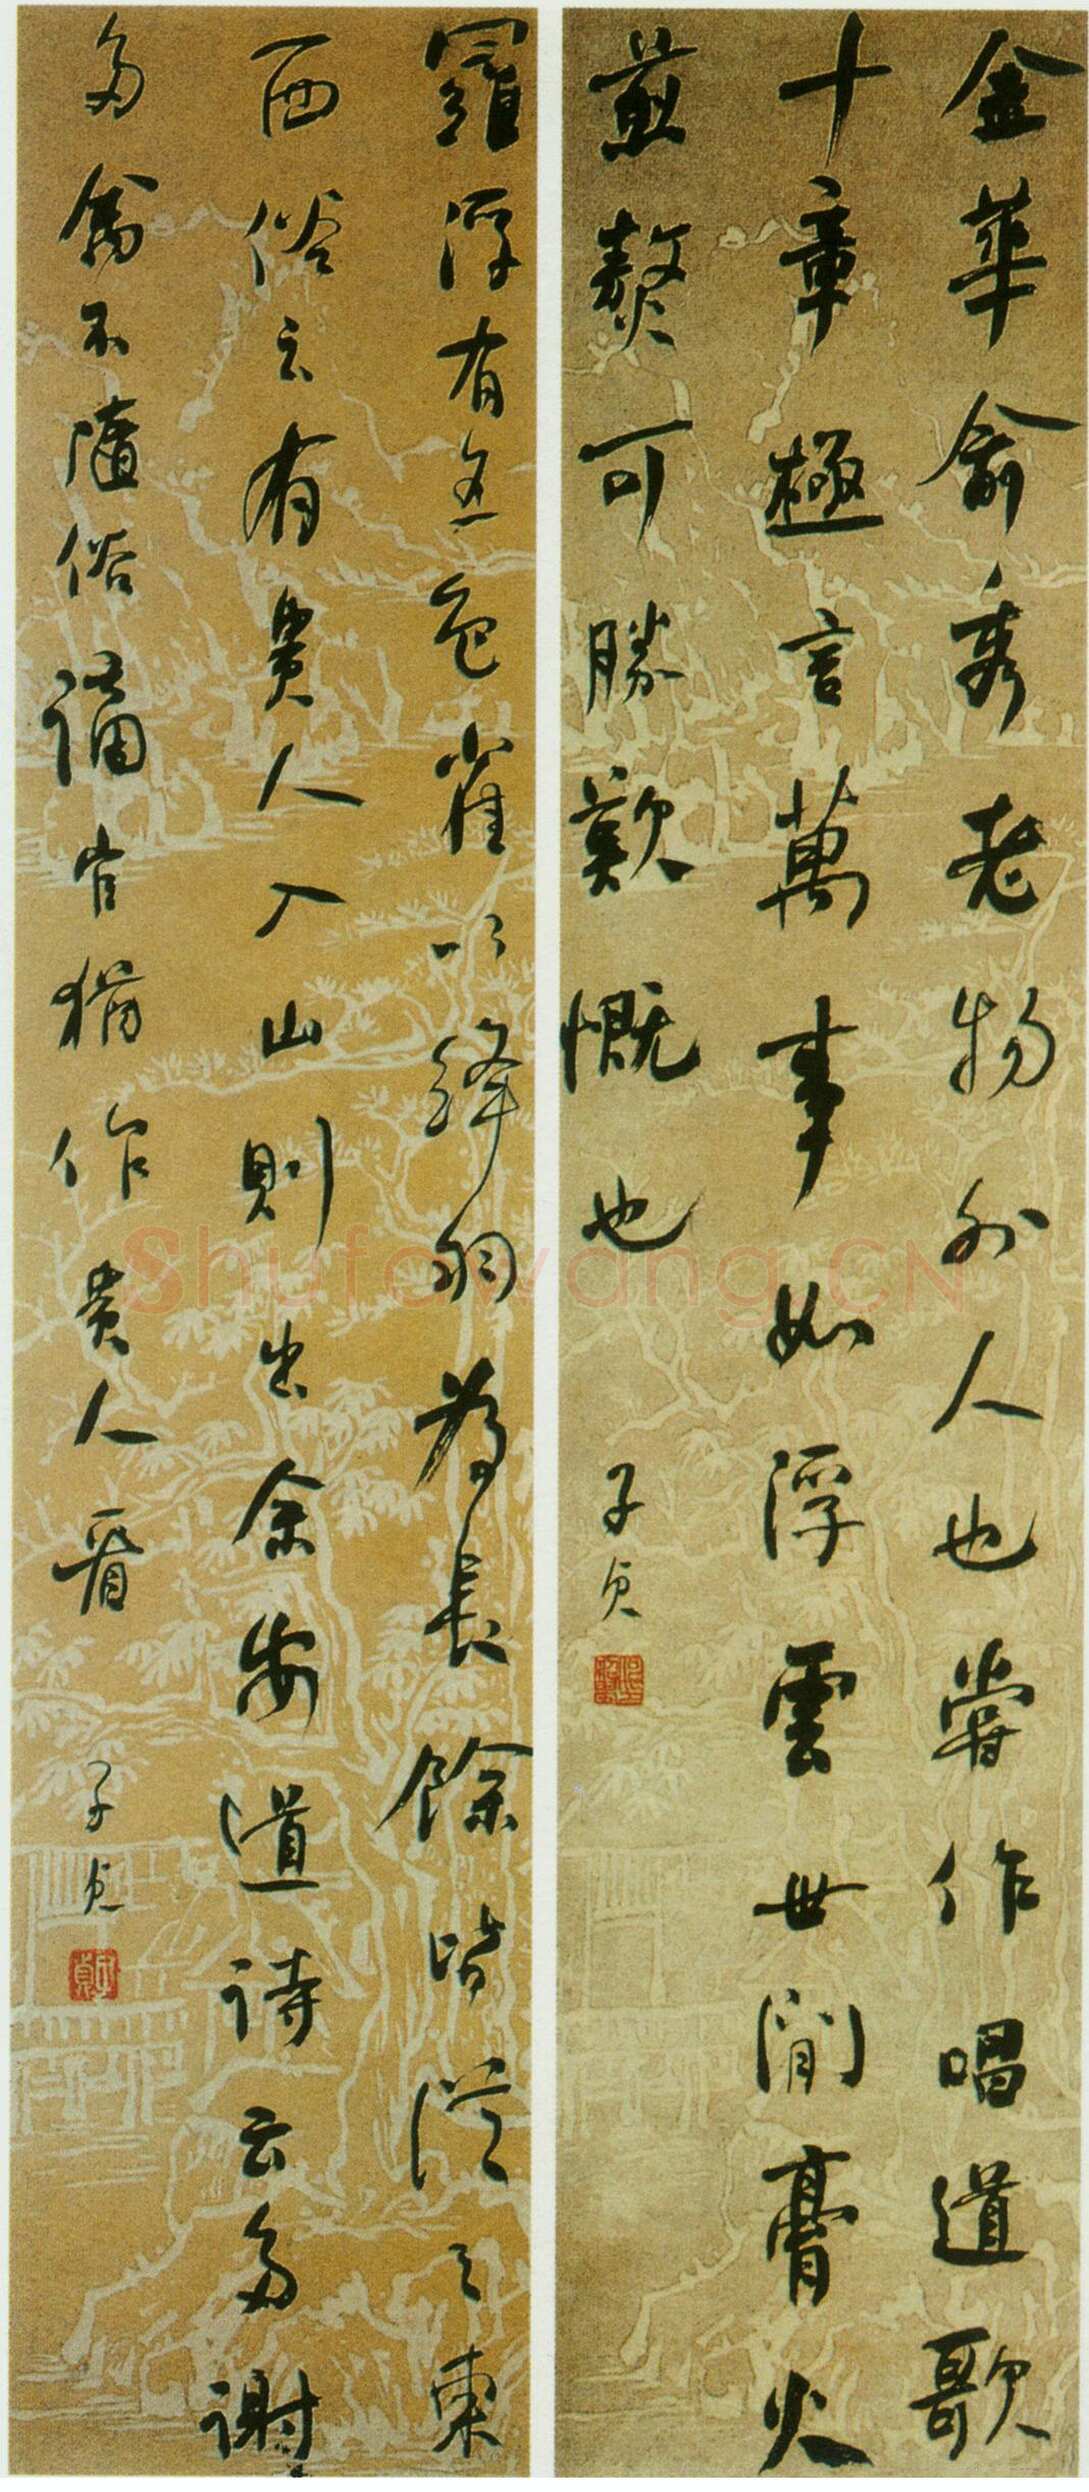 金華俞秀老物外人也嘗作唱道歌
十章極言萬事如浮雲世間膏火
煎熬可勝歎慨也
子貞
羅浮有五色雀以絳羽為長餘皆從之東
西俗云有貴人入山則出余安道詩云多謝
多禽不隨俗謂官猶作貴人看
子貞
Shufawang.CN